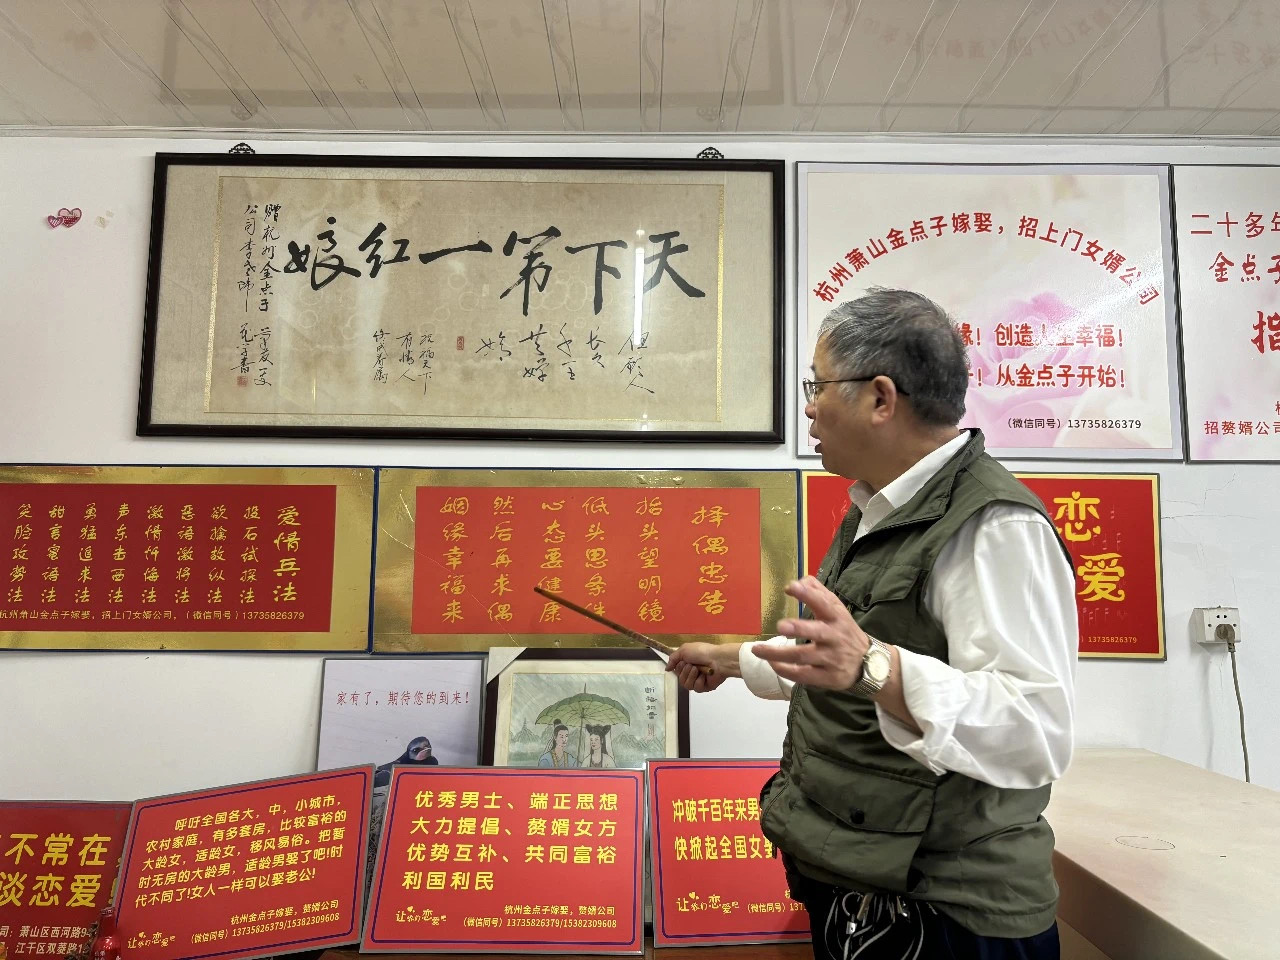 天下第一红娘
赠杭州金点子
公司李老师
但愿人
长久
千里
共婵
娟
祝福天下
有情人
终成眷属
杭州萧山金点子嫁娶，招上门女婿公司
缘！创造人生幸福！
！从金点子开始！
（微信同号）13735826379
二十多年
金点子
招
招赘婿公司
爱情兵法
投石试探法
欲擒故纵法
恶语激将法
激情忏悔法
声东击西法
勇猛追求法
甜言蜜语法
笑脸攻势法
杭州金点子嫁娶，招上门女婿公司，（微信同号）13735826379
择偶忠告
抬头望明镜
低头思条件
心态要健康
然后再求偶
姻缘幸福来
恋
爱
13735826379
家有了，期待您的到来！
断桥相会
不常在
谈恋爱
司：萧山区西河路9
：江干区双菱路1
呼吁全国各大，中，小城市，
农村家庭，有多套房，比较富裕的
大龄女，适龄女，移风易俗。把暂
时无房的大龄男，适龄男娶了吧!时
代不同了!女人一样可以娶老公!
杭州金点子嫁娶，赘婿公司
让我们恋爱吧
（微信同号）13735826379/15382309608
优秀男士、端正思想
大力提倡、赘婿女方
优势互补、共同富裕
利国利民
杭州金点子嫁娶，赘婿公司
让我们恋爱吧
（微信同号）13735826379/15382309608
冲破千百年来男
快掀起全国女
让我们恋爱吧
（微信同号）137